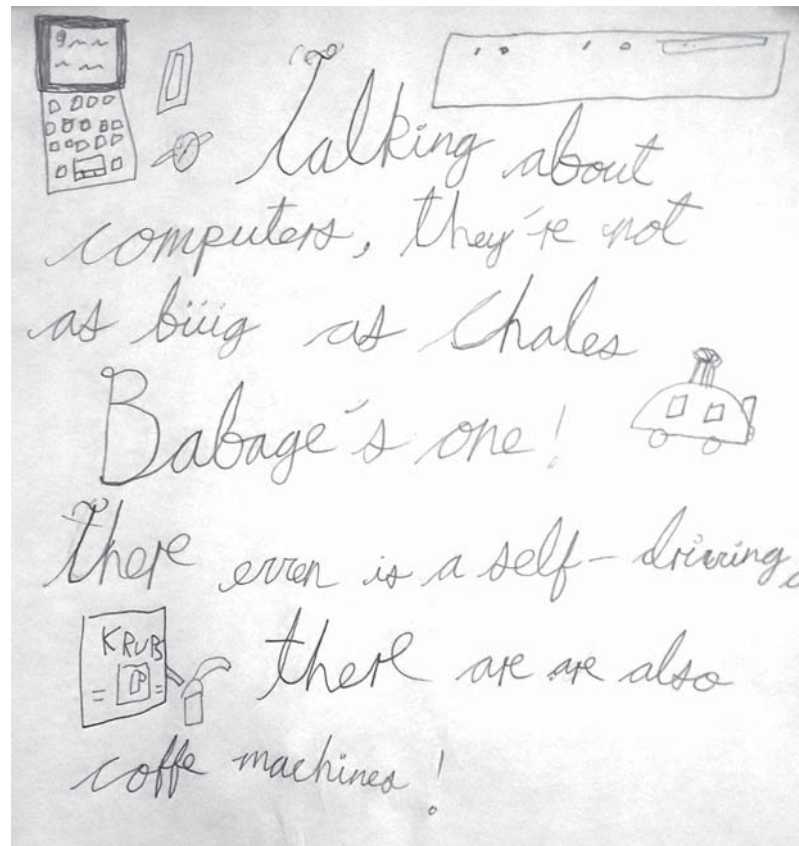 Talking about
computers, they're not
as biiig as Chales
Babage's one!
There even is a self-driving
KRUPS
there are are also
coffe machines!